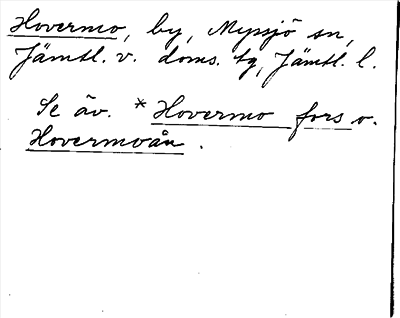 Hovermo, by, Myssjö sn,
Jämtl. v. doms. tg, Jämtl. l.
Se äv. *Hovermo fors o.
Hovermoån.